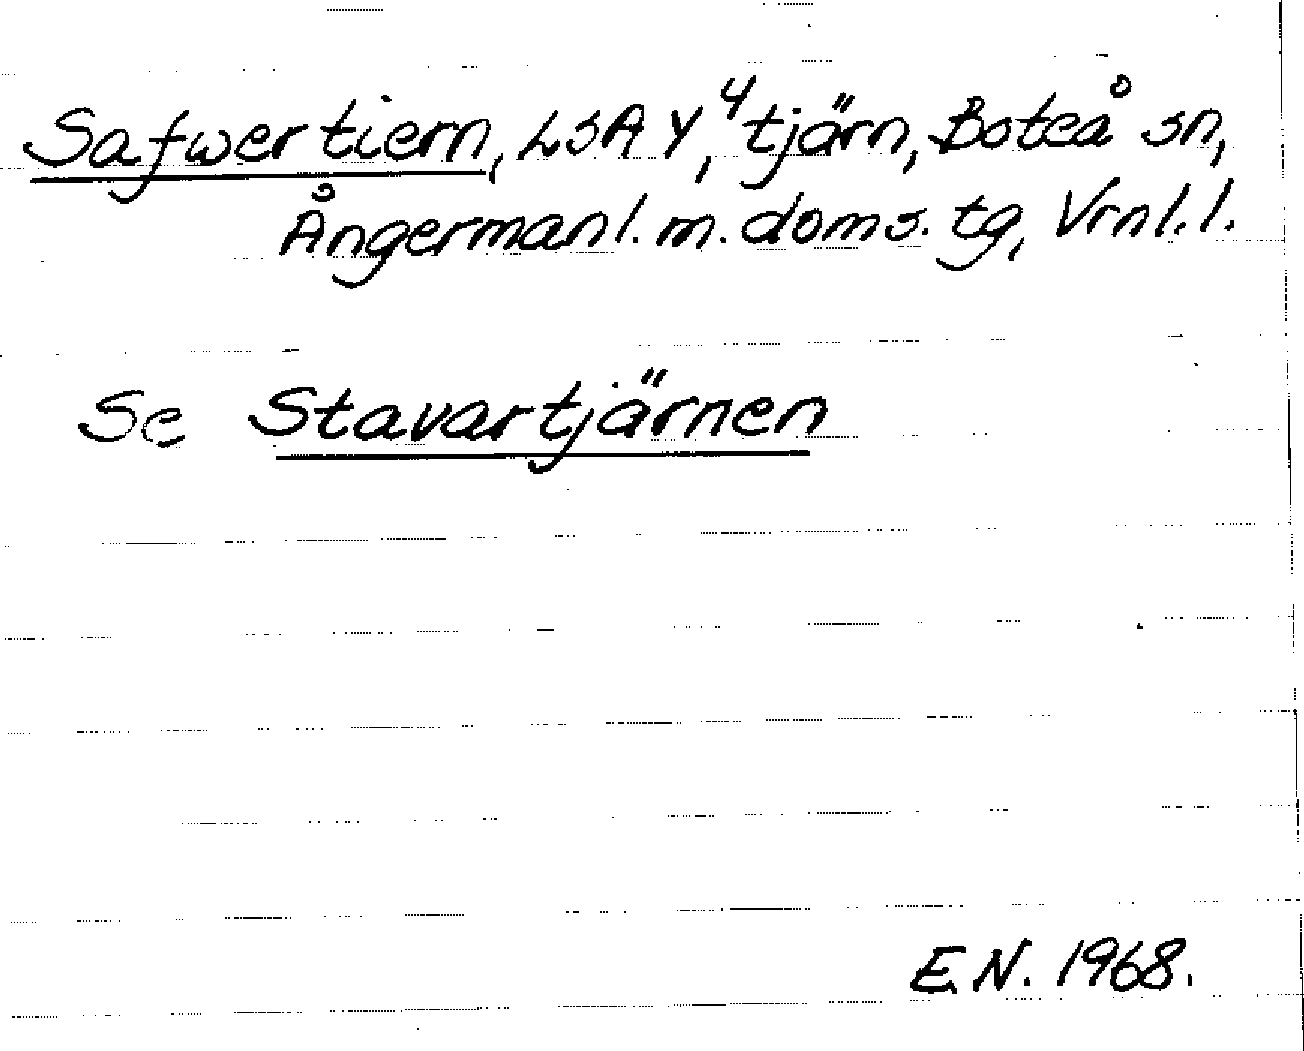 Safwer tiern, LSA Y⁴, tjärn, Boteå sn,
Ångermanl. m. doms. tg, Vrnl. l.
Se Stavartjärnen
E.N. 1968.